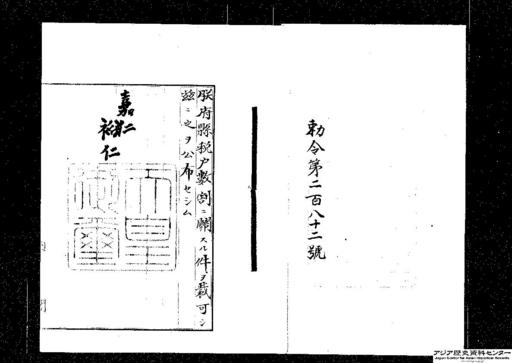 勅令第二百八十二號
朕府縣税戸數割ニ關スル件ヲ裁可シ
茲ニ之ヲ公布セシム
嘉仁
裕仁
天皇御璽
アジア歴史資料センター
Japan Center for Asian Historical Records